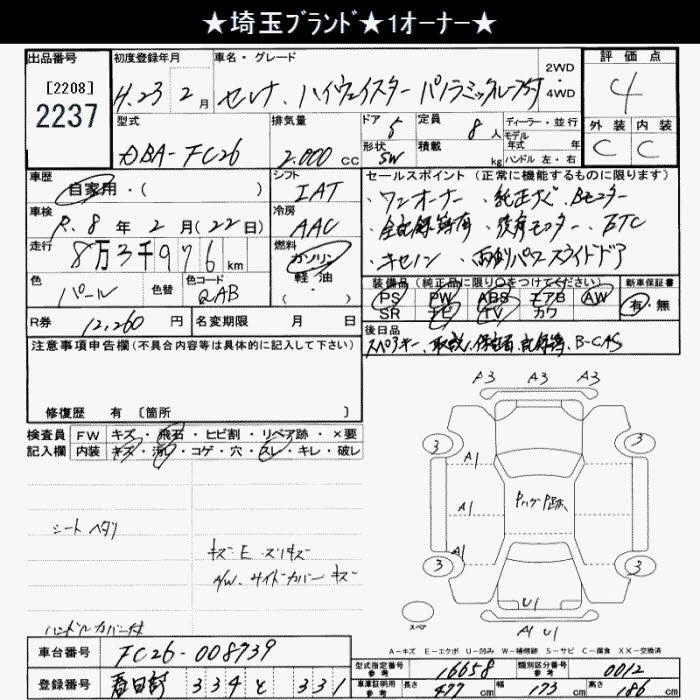 ★埼玉ブランド★1オーナー★
出品番号
[2208]
2237
初度登録年月
H.23年 2月
車名・グレード
セレナ、ハイウェイスター パノラミックルーフ付
2WD・4WD
評価点
4
型式
DBA-FC26
排気量
2.000cc
ドア 5
形状 SW
定員 8人
積載 kg
ディーラー・並行
モデル年式 年式
ハンドル 左・右
外装 内装
C C
車歴
自家用・( )
シフト
IAT
セールスポイント (正常に機能するものに限ります)
・ワンオーナー ・純正ナビ ・Bモニター
・全記録簿有 ・後席モニター ・ETC
・キセノン ・両側パワースライドドア
車検
R.8年 2月(22日)
冷房
AAC
走行
8万3千976km
燃料
ガソリン
軽油
・( )
色
パール
色替
色コード
QAB
装備品 (純正品に限り○をつけてください)
PS PW ABS エアB AW
SR ナビ TV カワ
新車保証書
有・無
R券 12,260円
名変期限 月 日
後日品
スペアキー、取説、保証書、記録簿、B-CAS
注意事項申告欄(不具合内容等は具体的に記入して下さい)
修復歴 有 [箇所 ]
検査員記入欄
FW キズ・飛石・ヒビ割・リペア跡・×要
内装 キズ・汚れ・コゲ・穴・スレ・キレ・破レ
シートヘタリ
キズ E スリキズ
A/W、サイドカバー キズ
ハンドルカバー付
A3 A3 A3
3 3
A1
A1
A1
3 3
U1
A1 U1
スペア
A-キズ E-エクボ U-凹み W-補修跡 S-サビ C-腐食 XX-交換済
車台番号 FC26-008739
登録番号 春日部 334 と 331
型式指定番号 参考 16658
類別区分番号 参考 0012
車庫証明用 参考 長さ 477cm 幅 173cm 高さ 186cm